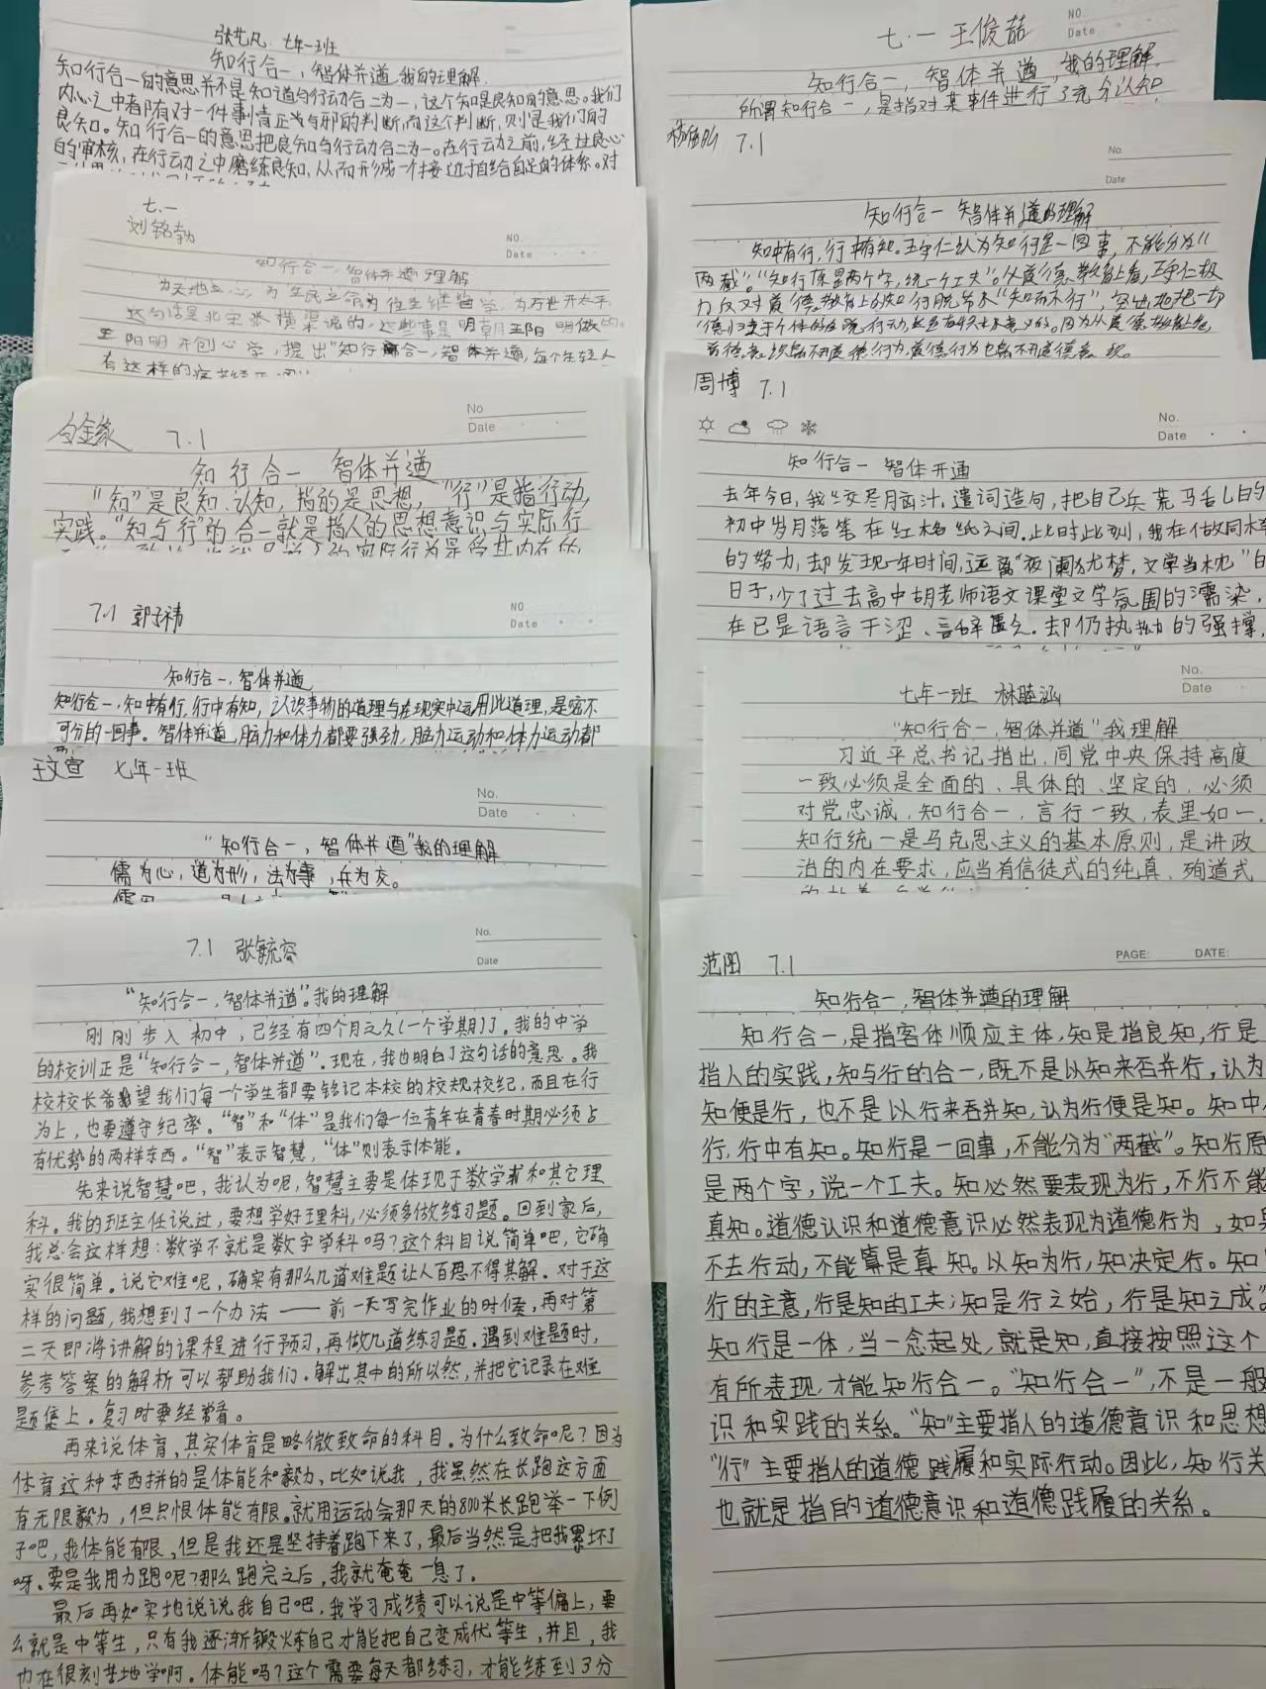 张艺凡 七年一班
知行合一,智体并遒 我的理解
知行合一的意思并不是知道与行动合二为一,这个知是良知的意思。我们
内心之中都有对一件事情正与邪的判断,而这个判断,则是我们的
良知。知行合一的意思把良知与行动合二为一。在行动之前,经过良心
的审核,在行动之中磨练良知,从而形成一个接近于自给自足的体系。对
七.一
刘铭勃
NO.
Date
知行合一,智体并遒 理解
为天地立心,为生民立命,为往圣继绝学,为万世开太平
这句话是北宋张横渠说的,这些事是明朝王阳明做的。
王阳明开创心学,提出"知行合一,智体并遒,每个年轻人
有这样的
No
Date
7.1
知行合一 智体并遒
"知"是良知、认知,指的是思想,"行"是指行动,
实践。"知与行"的合一就是指人的思想意识与实际行
7.1 郭子祎
NO
Date
知行合一,智体并遒
知行合一,知中有行,行中有知,认识事物的道理与在现实中运用此道理,是密不
可分的一回事。智体并遒,脑力和体力都要强劲,脑力运动和体力运动都
王文宣 七年一班
No.
Date
"知行合一,智体并遒"我的理解
儒为心,道为形,法为事,兵为攻。
7.1 张毓容
No.
Date
"知行合一,智体并遒"。我的理解
刚刚步入初中,已经有四个月之久(一个学期)了。我的中学
的校训正是"知行合一,智体并遒"。现在,我也明白了这句话的意思。我
校校长希望我们每一个学生都要铭记本校的校规校纪,而且在行
为上,也要遵守纪率。"智"和"体"是我们每一位青年在青春时期必须占
有优势的两样东西。"智"表示智慧,"体"则表示体能。
先来说智慧吧,我认为呢,智慧主要是体现于数学和其它理
科。我的班主任说过,要想学好理科,必须多做练习题。回到家后,
我总会这样想:数学不就是数字学科吗?这个科目说简单吧,它确
实很简单。说它难呢,确实有那么几道难题让人百思不得其解。对于这
样的问题,我想到了一个办法——前一天写完作业的时候,再对第
二天即将讲解的课程进行预习,再做几道练习题。遇到难题时,
参考答案的解析可以帮助我们,解出其中的所以然,并把它记录在难
题集上。复习时要经常看。
再来说体育,其实体育是略微致命的科目。为什么致命呢?因为
体育这种东西拼的是体能和毅力,比如说我,我虽然在长跑这方面
有无限毅力,但只恨体能有限。就用运动会那天的800米长跑举一下例
子吧,我体能有限,但是我还是坚持着跑下来了,最后当然是把我累坏了
呀。要是我用力跑呢?那么跑完之后,我就奄奄一息了。
最后再如实地说说我自己吧,我学习成绩可以说是中等偏上,要
么就是中等生,只有我逐渐锻炼自己才能把自己变成优等生,并且,我
也在很刻苦地学啊。体能吗?这个需要每天都练习,才能练到3分
七.一 王俊喆
NO
Date
知行合一,智体并遒,我的理解
所谓知行合一,是指对某事件进行了充分认知
7.1
No
Date
知行合一 智体并遒的理解
知中有行,行中有知。王守仁认为知行是一回事,不能分为"
两截"。"知行原是两个字,统一个工夫"。从道德、教育上看,王守仁极
力反对道德教育上的知行脱节及"知而不行",突出地把一切
周博 7.1
No.
Date
知行合一 智体并遒
去年今日,我绞尽脑汁,遣词造句,把自己兵荒马乱的
初中岁月落笔在红格纸之间。此时此刻,我在做同样
的努力,却发现一年时间,远离"夜阑犹梦,文学当枕"的
日子,少了过去高中胡老师语文课堂文学氛围的濡染,
在已是语言干涩、言辞匮乏。却仍执拗的强撑,
No.
Date
七年一班 林睦涵
"知行合一,智体并遒"我理解
习近平总书记指出,同党中央保持高度
一致必须是全面的、具体的、坚定的,必须
对党忠诚,知行合一,言行一致,表里如一。
知行统一是马克思主义的基本原则,是讲政
治的内在要求,应当有信徒式的纯真、殉道式
范图 7.1
PAGE: DATE:
知行合一,智体并遒的理解
知行合一,是指客体顺应主体,知是指良知,行是
指人的实践,知与行的合一,既不是以知来吞并行,认为
知便是行,也不是以行来吞并知,认为行便是知。知中
行,行中有知。知行是一回事,不能分为"两截"。知行原
是两个字,说一个工夫。知必然要表现为行,不行不能
真知。道德认识和道德意识必然表现为道德行为,如果
不去行动,不能算是真知。以知为行,知决定行。知
行的主意,行是知的工夫;知是行之始,行是知之成"。
知行是一体,当一念起处,就是知,直接按照这个
有所表现,才能知行合一。"知行合一",不是一般
识和实践的关系。"知"主要指人的道德意识和思想
"行"主要指人的道德践履和实际行动。因此,知行关
也就是指的道德意识和道德践履的关系。